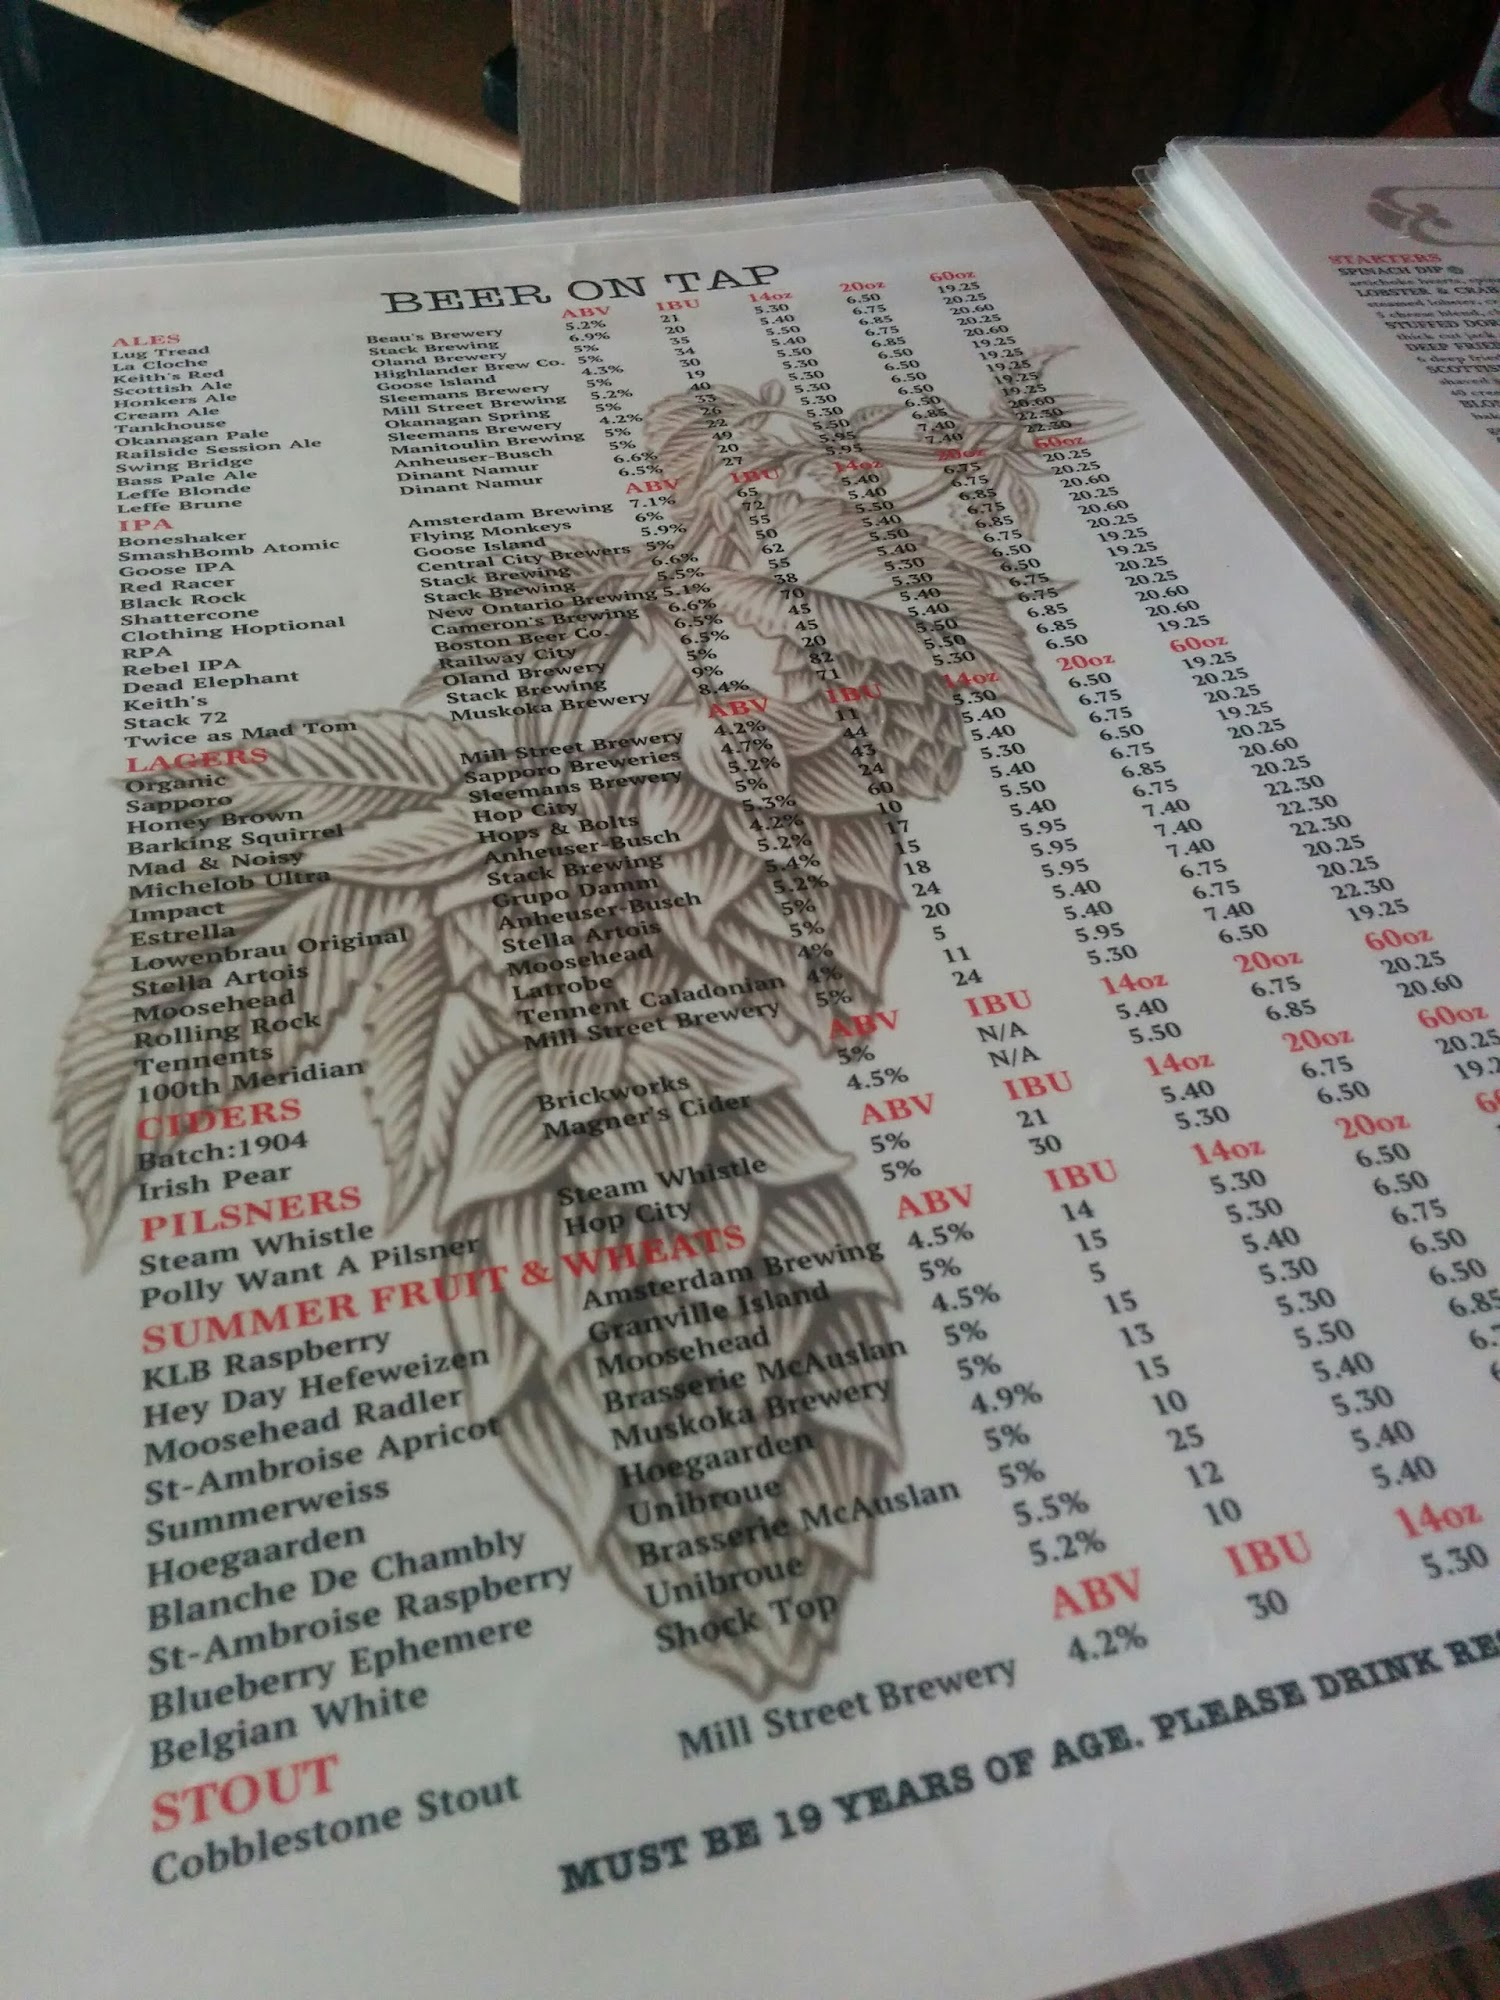 BEER ON TAP
ALES ABV IBU 14oz 20oz 60oz
Lug Tread Beau's Brewery 5.2% 21 5.30 6.50 19.25
La Cloche Stack Brewing 6.9% 20 5.40 6.75 20.25
Keith's Red Oland Brewery 5% 35 5.50 6.85 20.60
Scottish Ale Highlander Brew Co. 5% 34 5.40 6.75 20.25
Honkers Ale Goose Island 4.3% 30 5.50 6.85 20.60
Cream Ale Sleemans Brewery 5% 19 5.30 6.50 19.25
Tankhouse Mill Street Brewing 5.2% 40 5.30 6.50 19.25
Okanagan Pale Okanagan Spring 5% 33 5.30 6.50 19.25
Railside Session Ale Sleemans Brewery 4.2% 26 5.30 6.50 19.25
Swing Bridge Manitoulin Brewing 5% 22
Bass Pale Ale Anheuser-Busch 5% 49 5.50 6.85 20.60
Leffe Blonde Dinant Namur 6.6% 20 5.95 7.40 22.30
Leffe Brune Dinant Namur 6.5% 27 5.95 7.40 22.30
IPA ABV IBU 14oz 20oz 60oz
Boneshaker Amsterdam Brewing 7.1% 65 5.40 6.75 20.25
SmashBomb Atomic Flying Monkeys 6% 72
Goose IPA Goose Island 5.9% 55
Red Racer Central City Brewers 5% 50
Black Rock Stack Brewing 6.6% 62
Shattercone Stack Brewing 5.5% 55
Clothing Hoptional New Ontario Brewing 5.1% 38
RPA Cameron's Brewing 6.6% 70
Rebel IPA Boston Beer Co. 6.5% 45
Dead Elephant Railway City 6.5% 45
Keith's Oland Brewery 5% 20
Stack 72 Stack Brewing 9% 82
Twice as Mad Tom Muskoka Brewery 8.4% 71 5.30 6.50 19.25
LAGERS ABV IBU 14oz 20oz 60oz
Organic Mill Street Brewery 4.2% 11 5.30 6.50 19.25
Sapporo Sapporo Breweries 4.7% 44 5.40 6.75 20.25
Honey Brown Sleemans Brewery 5.2% 43 5.40 6.75 20.25
Barking Squirrel Hop City 5% 24 5.30 6.50 19.25
Mad & Noisy Hops & Bolts 5.3% 60 5.40 6.75 20.25
Michelob Ultra Anheuser-Busch 4.2% 10 5.50 6.85 20.60
Impact Stack Brewing 5.2% 17 5.40 6.75 20.25
Estrella Grupo Damm 5.4% 15 5.95 7.40 22.30
Lowenbrau Original Anheuser-Busch 5.2% 18 5.95 7.40 22.30
Stella Artois Stella Artois 5% 24 5.95 7.40 22.30
Moosehead Moosehead 5% 20 5.40 6.75 20.25
Rolling Rock Latrobe 4% 5 5.40 6.75 20.25
Tennents Tennent Caladonian 4% 11 5.95 7.40 22.30
100th Meridian Mill Street Brewery 5% 24 5.30 6.50 19.25
CIDERS ABV IBU 14oz 20oz 60oz
Batch:1904 Brickworks 5% N/A 5.40 6.75 20.25
Irish Pear Magner's Cider 4.5% N/A 5.50 6.85 20.60
PILSNERS ABV IBU 14oz 20oz 60oz
Steam Whistle Steam Whistle 5% 21 5.40 6.75 20.25
Polly Want A Pilsner Hop City 5% 30 5.30 6.50 19.2
SUMMER FRUIT & WHEATS ABV IBU 14oz 20oz
KLB Raspberry Amsterdam Brewing 4.5% 14 5.30 6.50
Hey Day Hefeweizen Granville Island 5% 15 5.30 6.50
Moosehead Radler Moosehead 4.5% 5 5.40 6.75
St-Ambroise Apricot Brasserie McAuslan 5% 15 5.30 6.50
Summerweiss Muskoka Brewery 5% 13 5.30 6.50
Hoegaarden Hoegaarden 4.9% 15 5.50 6.85
Blanche De Chambly Unibroue 5% 10 5.40
St-Ambroise Raspberry Brasserie McAuslan 5% 25 5.30
Blueberry Ephemere Unibroue 5.5% 12 5.40
Belgian White Shock Top 5.2% 10 5.40
STOUT ABV IBU 14oz
Cobblestone Stout Mill Street Brewery 4.2% 30 5.30
MUST BE 19 YEARS OF AGE. PLEASE DRINK
STARTERS
SPINACH DIP
LOBSTER & CRAB